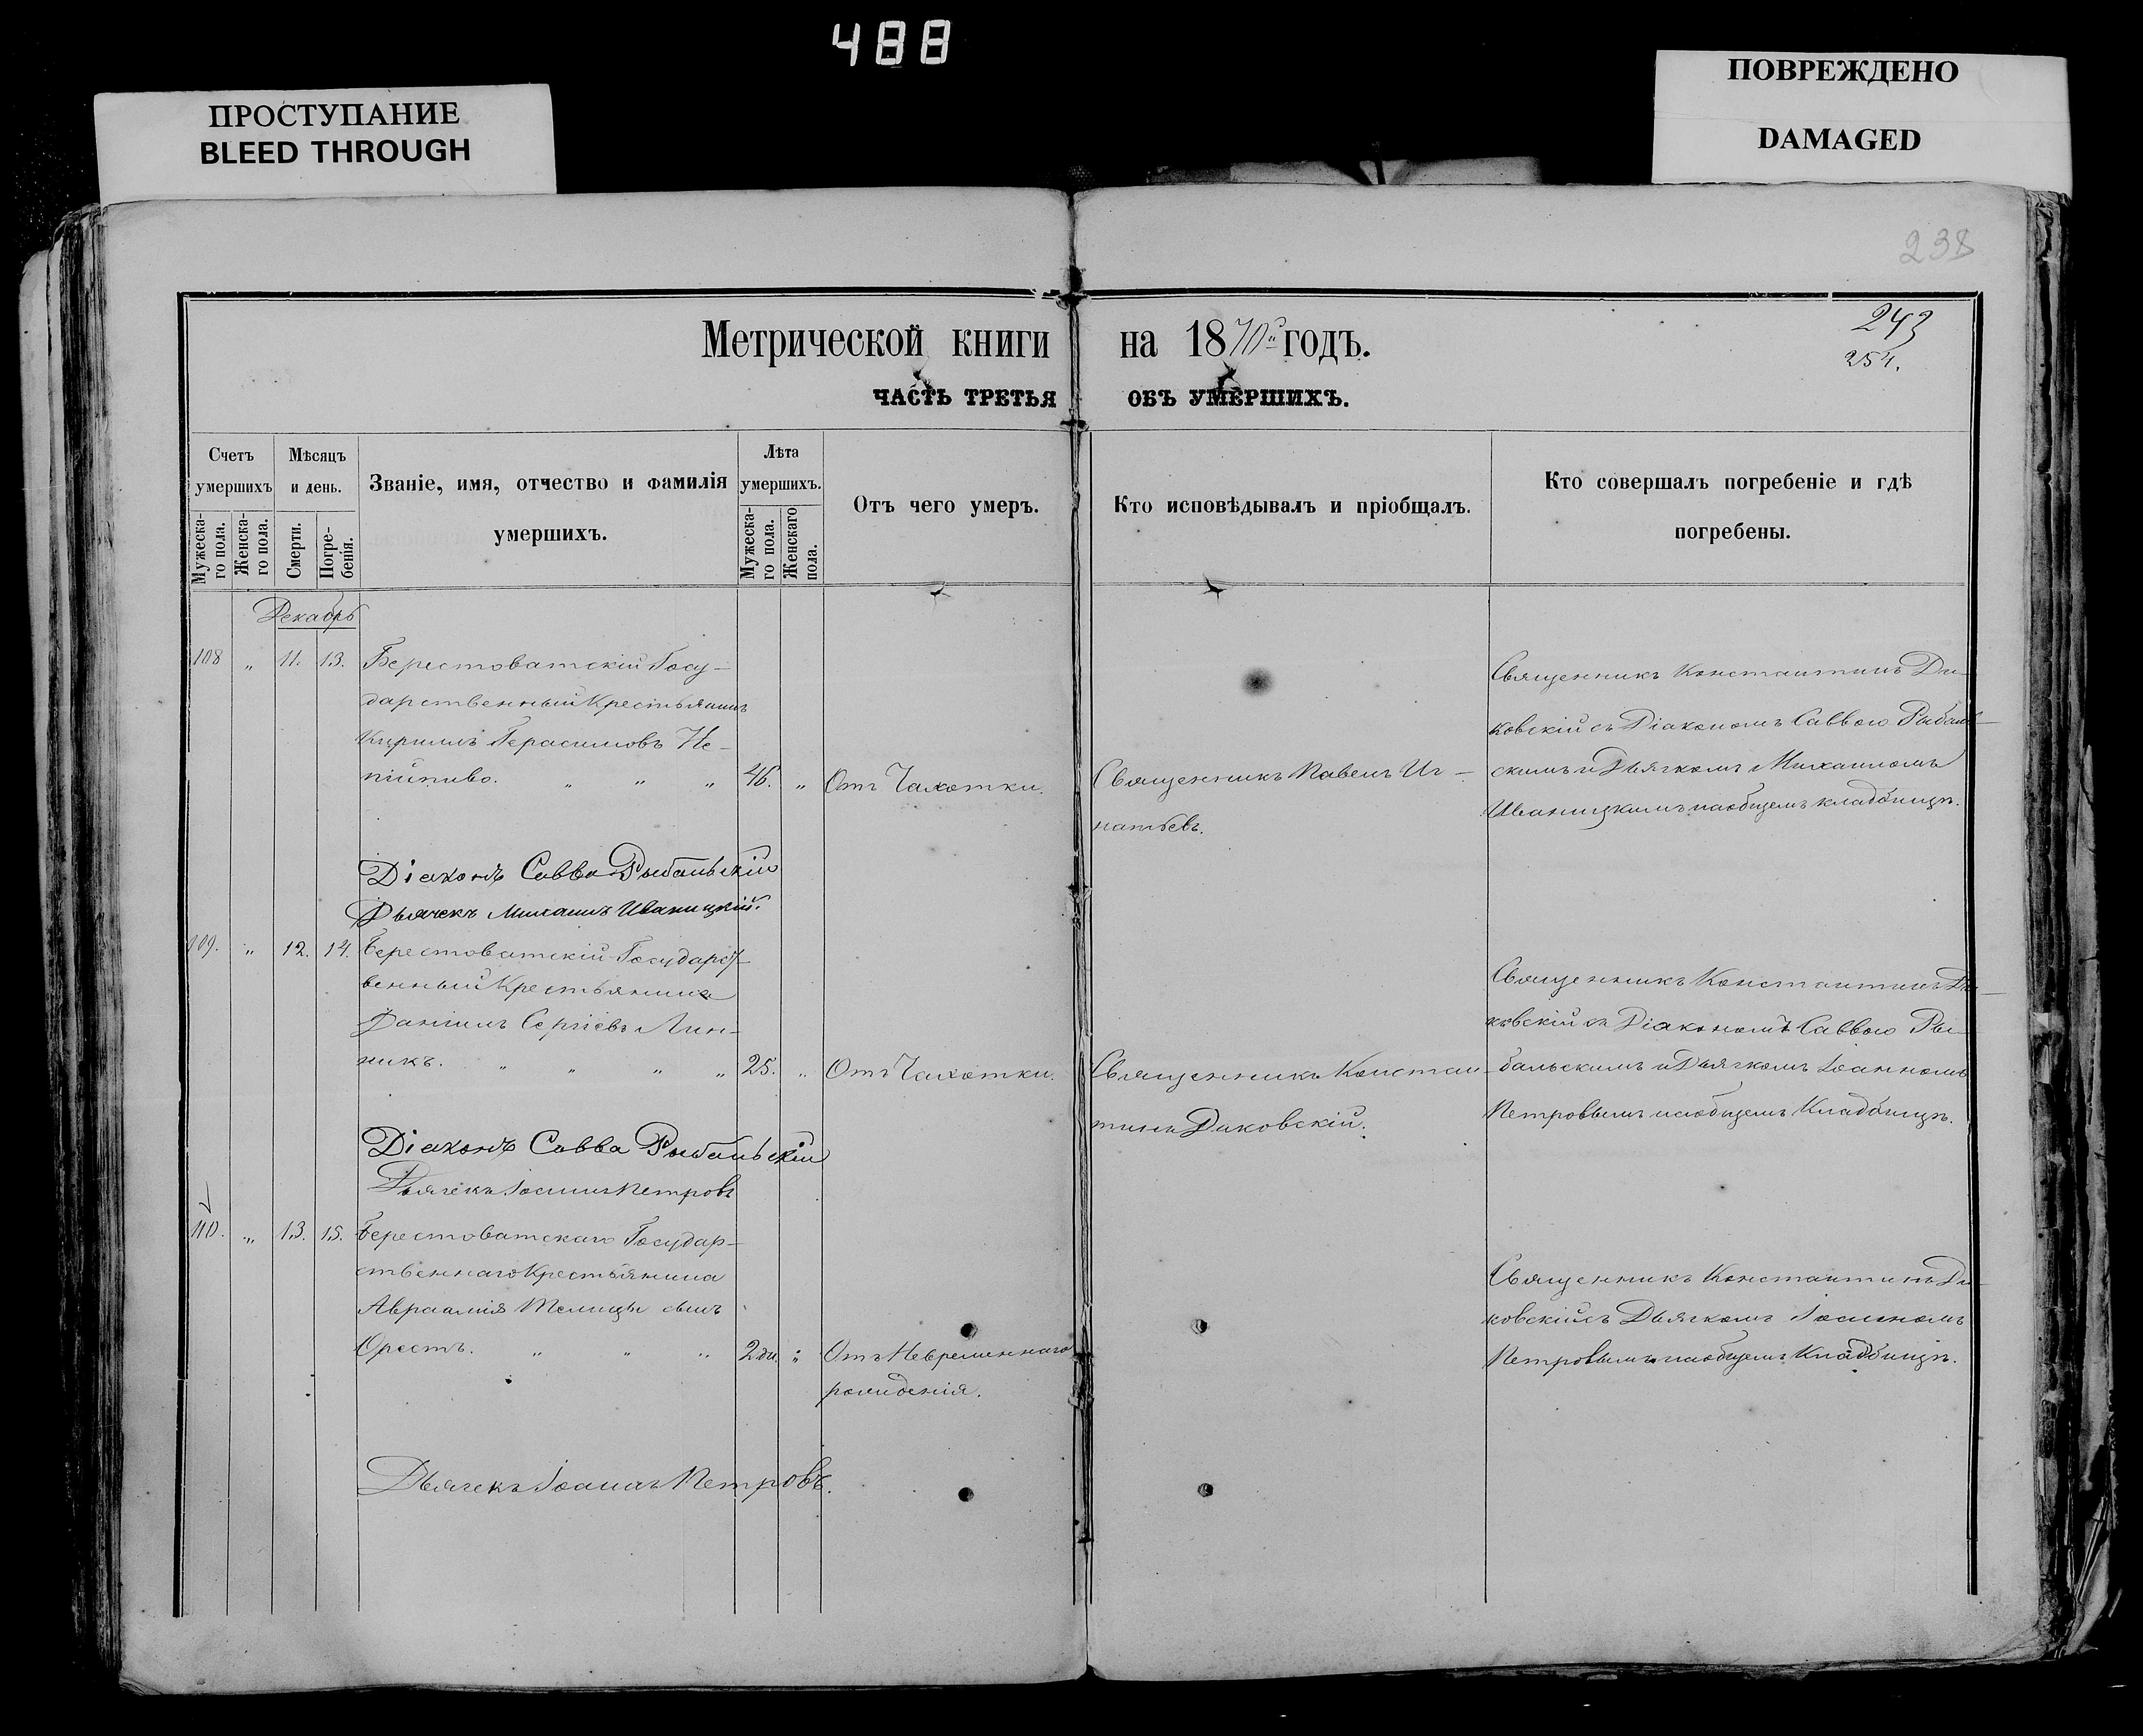 488
ПРОСТУПАНИЕ
BLEED THROUGH
ПОВРЕЖДЕНО
DAMAGED
238
Метрической книги на 1870й годъ.
243
254.
ЧАСТЬ ТРЕТЬЯ ОБЪ УМЕРШИХЪ.
Счетъ умершихъ
Мужеска-го пола.
Женска-го пола.
Мѣсяцъ и день.
Смерти.
Погре-бенія.
Званіе, имя, отчество и фамилія
умершихъ.
Лѣта умершихъ.
Мужеска-го пола.
Женскаго пола.
Отъ чего умеръ.
Кто исповѣдывалъ и пріобщалъ.
Кто совершалъ погребеніе и гдѣ
погребены.
Декабрь
108 " 11. 13. Берестоватскій Госу-
дарственный Крестьянинъ
Кирилъ Герасимовъ Не-
пійпиво. " " " 46. " Отъ Чахотки.
Священникъ Павелъ Иг-
натьевъ.
Священникъ Константинъ Ди-
ковскій съ Діакономъ Саввою Рыбаль-
скимъ и Дьячкомъ Михаиломъ
Иваницкимъ на общемъ кладбищѣ.
Діаконъ Савва Рыбальскій
Дьячекъ Михаилъ Иваницкій.
109. " 12. 14. Берестоватскій Государст-
венный Крестьянинъ
Даніилъ Сергіевъ Лин-
никъ. " " " " 25. " Отъ Чахотки.
Священникъ Констан-
тинъ Диковскій.
Священникъ Константинъ Ди-
ковскій съ Діакономъ Саввою Ры-
бальскимъ и Дьячкомъ Іоанномъ
Петровымъ на общемъ Кладбищѣ.
Діаконъ Савва Рыбальскій
Дьячекъ Іоаннъ Петровъ
110. " 13. 15. Берестоватскаго Государ-
ственнаго Крестьянина
Авраамія Телицы сынъ
Орестъ. " " " 2 дн. " Отъ Невременнаго
рожденія.
Священникъ Константинъ Ди-
ковскій съ Дьячкомъ Іоанномъ
Петровымъ на общемъ Кладбищѣ.
Дьячекъ Іоаннъ Петровъ.